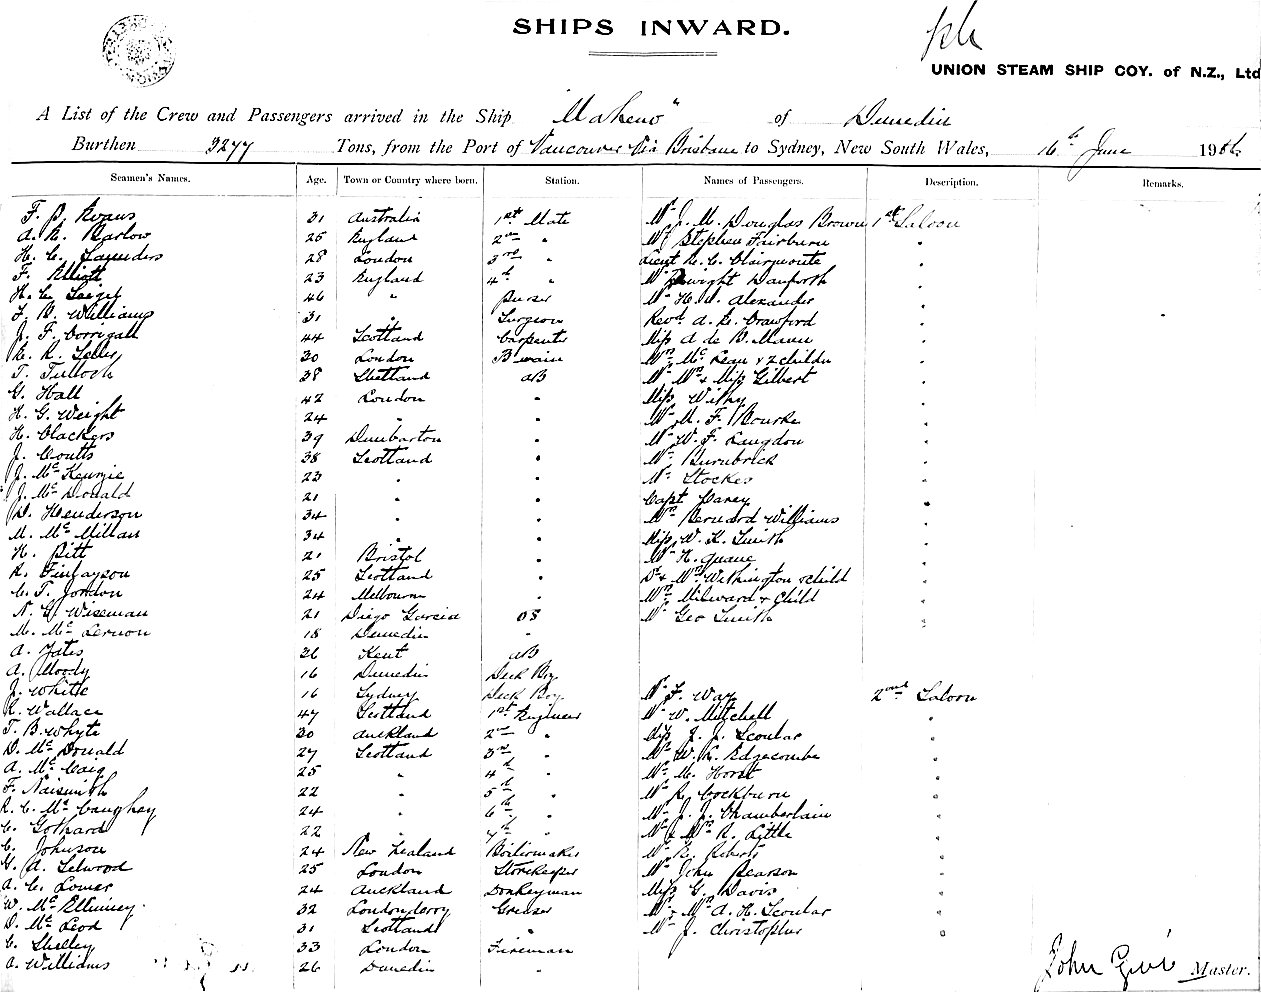 SHIPS INWARD.
UNION STEAM SHIP COY. of N.Z., Ltd
A List of the Crew and Passengers arrived in the Ship "Maheno" of Dunedin
Burthen 3277 Tons, from the Port of Vancouver via Brisbane to Sydney, New South Wales, 16th June 19
Seamen's Names. Age. Town or Country where born. Station. Names of Passengers. Description. Remarks.
F. B. Evans 31 Australia 1st Mate Mr J. M. Douglas Brown 1st Saloon
A. E. Barlow 25 England 2nd " Mr Stephen Fairburn "
H. C. Saunders 28 London 3rd " Lieut E. C. Clairmonte "
F. Elliott 23 England 4th " Mr Dwight Danforth "
H. C. 46 " Purser Mr H. Alexander "
F. Williams 31 " Surgeon Revd A. E. Crawford "
J. F. Corrigall 44 Scotland Carpenter Miss A de B. Mann "
30 London B'swain Mrs McLean & 2 childn "
T. Tulloch 38 Shetland AB Mr Mrs & Miss Gilbert "
G. Hall 42 London " Miss Withy "
H. G. Weight 24 " " Mr M. F. Rourke "
H. Clackers 39 Dumbarton " Mr W. F. Langdon "
J. Coutts 38 Scotland " Mr "
J. McKenzie 23 " " Mr Stockes "
J. McDonald 21 " " Capt Carey "
D. Henderson 34 " " Mrs Bernard Williams "
M. McMillan 34 " " Miss W. K. Smith "
H. Pitt 21 Bristol " Mr H. Quane "
R. Finlayson 25 Scotland " Dr & Mrs Withington & child "
C. T. Jordon 24 Melbourne " Mrs Milward & Child "
N. G. Wiseman 21 Diego Garcia OS Mr Geo Smith "
M. McLernon 18 Dunedin "
A. Yates 26 Kent AB
A. Moody 16 Dunedin Deck Boy
J. White 16 Sydney Deck Boy Mr F. Way 2nd Saloon
R. Wallace 47 Scotland 1st Engineer Mr W. Mitchell "
T. B. Whyte 30 Auckland 2nd " Miss J. J. Scoular "
D. McDonald 27 Scotland 3rd " Mr W. L. Edgecombe "
A. McCaig 25 " 4th " Mr M. Horst "
F. Naismith 22 " 5th " Mr R. Cockburn "
R. C. McCaughey 24 " 6th " Mr J. J. Chamberlain "
C. Gothard 22 " 7th " Mr & Mrs R. Little "
C. Johnson 24 New Zealand Boilermaker Mr Roberts "
G. A. Selwood 25 London Storekeeper Mr John Pearson "
A. C. Lomer 24 Auckland Donkeyman Miss G. Davis "
W. McElhinney 32 Londonderry Greaser Mr & Mrs A. H. Scoular "
D. McLeod 31 Scotland " Mr J. Christopher "
C. Shelley 33 London Fireman
A. Williams 26 Dunedin " John Master.